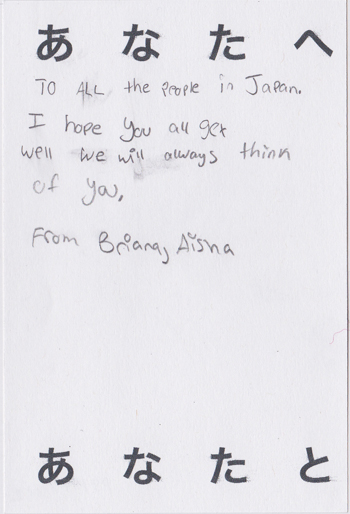 あなたへ
To ALL the people in Japan.
I hope you all get
well we will always think
of you,
From Briana, Aisha
あなたと